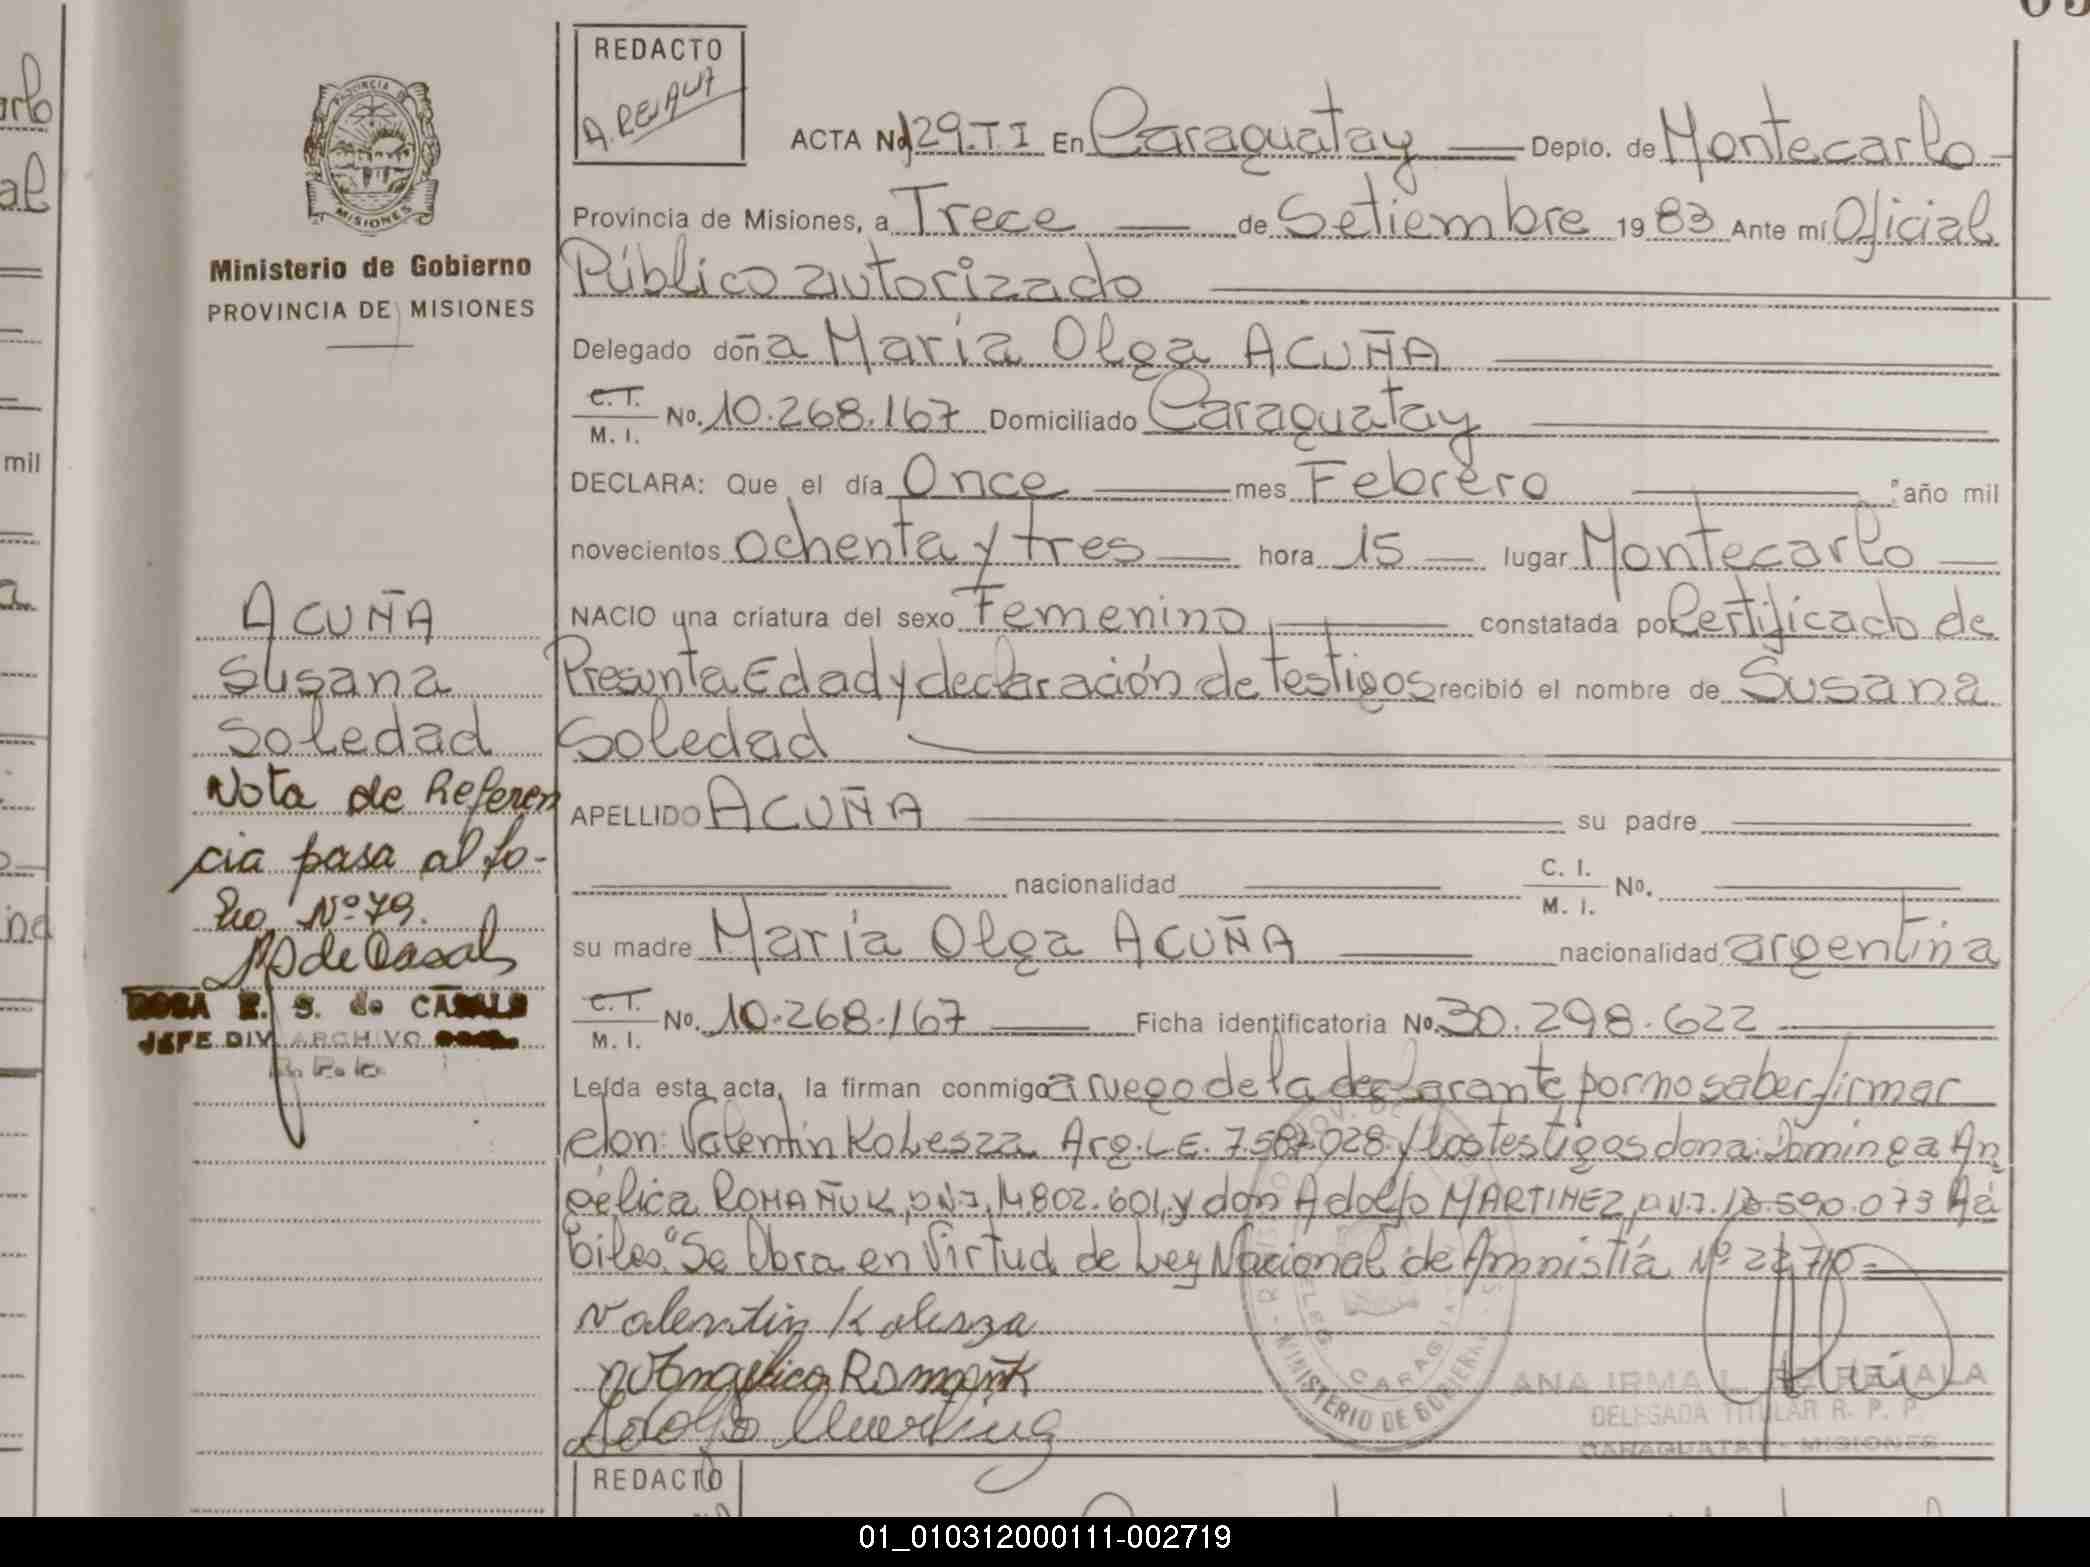 REDACTO
A. REJALA
PROVINCIA DE
MISIONES
Ministerio de Gobierno
PROVINCIA DE MISIONES
ACTA No 129.T I En Caraguatay Depto. de Montecarlo
Provincia de Misiones, a Trece de Setiembre 1983 Ante mí Oficial
Público autorizado
Delegado doña María Olga ACUÑA
C. I. M. I. No. 10.268.167 Domiciliado Caraguatay
DECLARA: Que el día Once mes Febrero año mil
novecientos ochenta y tres hora 15 lugar Montecarlo
NACIO una criatura del sexo Femenino constatada por Certificado de
Presunta Edad y declaración de testigos recibió el nombre de Susana
Soledad
APELLIDO ACUÑA su padre
nacionalidad C. I. M. I. No.
su madre María Olga ACUÑA nacionalidad argentina
C. I. M. I. No. 10.268.167 Ficha identificatoria No. 30.298.622
Leída esta acta, la firman conmigo a ruego de la declarante por no saber firmar
don: Valentín Kolesza Arg. L.E. 7.587.028 y los testigos dona: Dominga An
gélica ROMAÑUK, D.N.I. 14.802.601, y don Adolfo MARTINEZ, D.N.I. 590.073 Há
biles. "Se Obra en Virtud de Ley Nacional de Amnistía Nº 22.710
Valentin Kolesza
Angelica Romañuk
Adolfo
ACUÑA
Susana
Soledad
Nota de Referen
cia pasa al fo-
lio Nº 79.
de Casals
ROSA E. S. de CASALS
JEFE DIV ARCHIVO
MINISTERIO DE GOBIERNO
ANA IRMA L. DE REJALA
DELEGADA TITULAR R. P. P.
CARAGUATAY - MISIONES
REDACTO
01_010312000111-002719